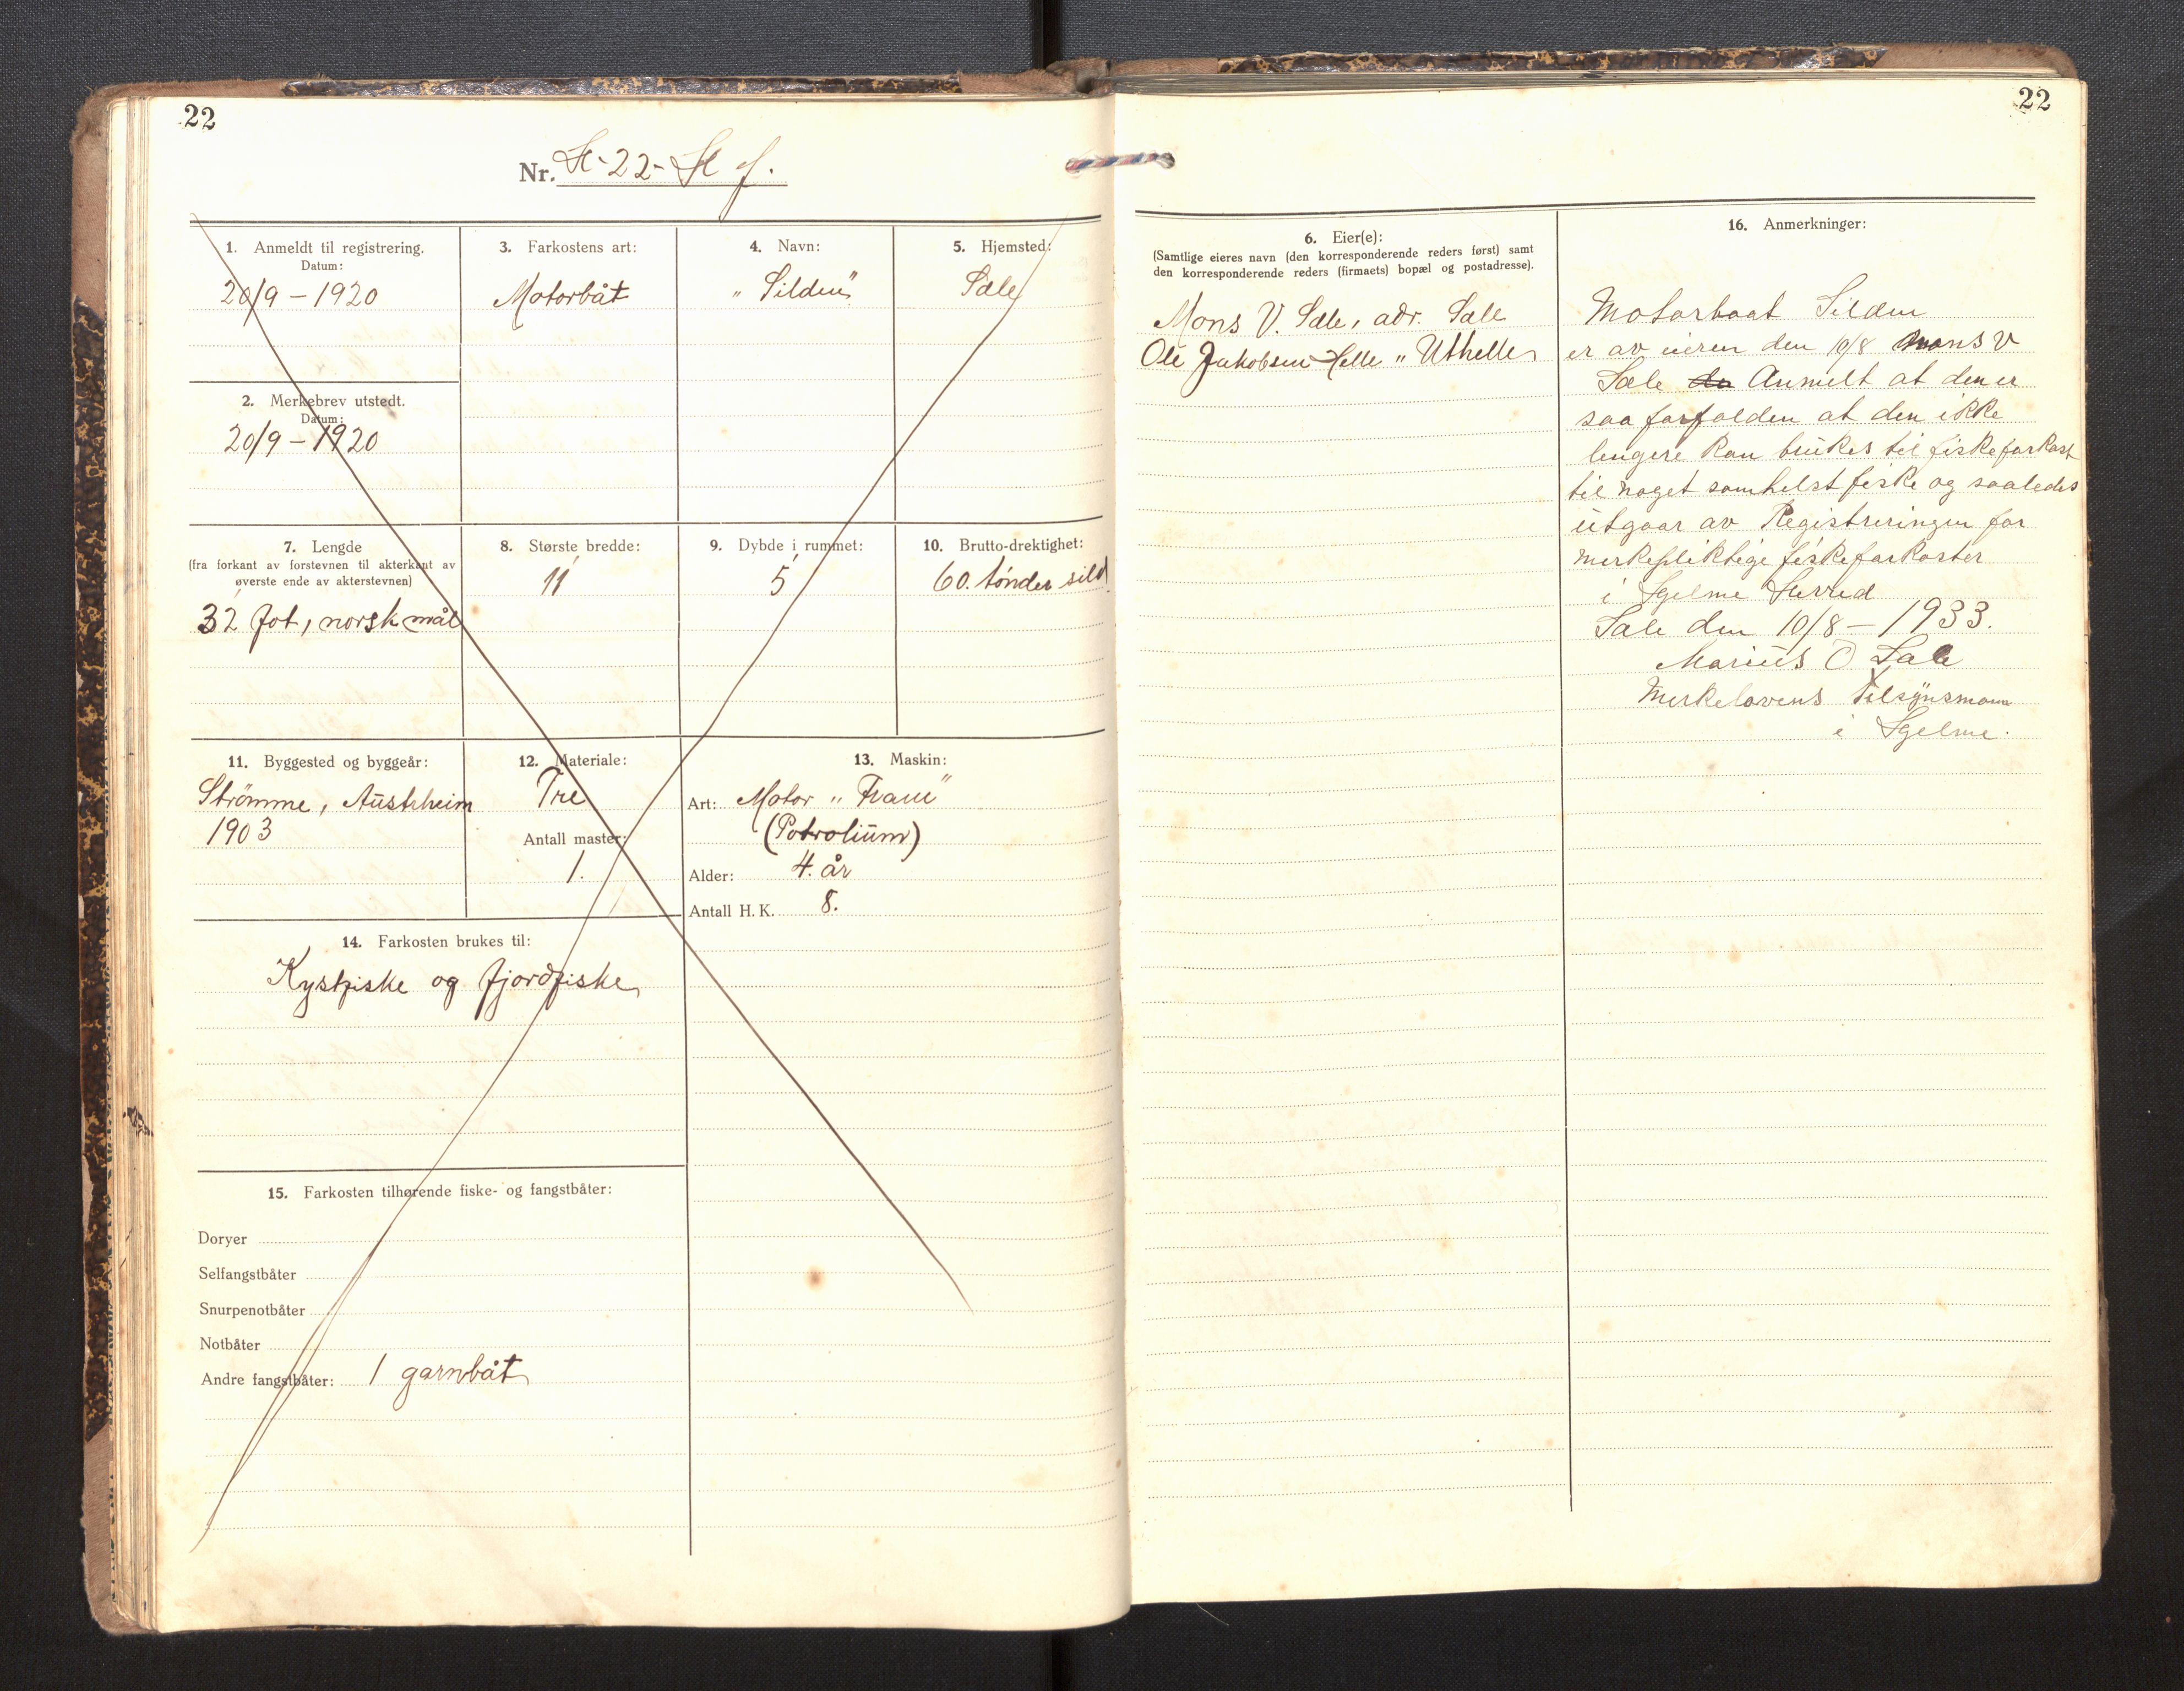 22
Nr. H-22-Hf.
1. Anmeldt til registrering.
Datum:
20/9 - 1920
2. Merkebrev utstedt.
Datum:
20/9 - 1920
3. Farkostens art:
Motorbåt
4. Navn:
"Silden"
5. Hjemsted:
Sæle
7. Lengde
(fra forkant av forstevnen til akterkant av
øverste ende av akterstevnen)
32 fot, norsk mål
8. Største bredde:
11'
9. Dybde i rummet:
5'
10. Brutto-drektighet:
60. tønder sild.
11. Byggested og byggeår:
Strömme, Austrheim
1903
12. Materiale:
Tre
Antall master:
1.
13. Maskin:
Art: Motor "Fram"
(Potrolium)
Alder: 4. år
Antall H. K. 8.
14. Farkosten brukes til:
Kystfiske og fjordfiske
15. Farkosten tilhørende fiske- og fangstbåter:
Doryer
Selfangstbåter
Snurpenotbåter
Notbåter
Andre fangstbåter: 1 garnbåt
22
6. Eier(e):
(Samtlige eieres navn (den korresponderende reders først) samt
den korresponderende reders (firmaets) bopæl og postadresse).
Mons V. Sæle, adr. Sæle
Ole Jakobsen Helle " Uthelle
16. Anmerkninger:
Motorbaat Silden
er av eieren den 10/8 Mons V
Sæle da Anmelt at den er
saa forfalden at den ikke
lengere kan brukes til fiskefarkost
til noget somhelst fiske og saaledes
utgaar av Registreringen for
merkepliktige fiskefarkoster
i Hjelme Herred
Sæle den 10/8 - 1933.
Marius O Sæle
Merkelovens Tilsynsmann
i Hjelme.